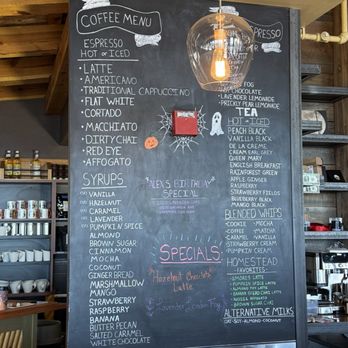 COFFEE MENU
ESPRESSO
HOT OR ICED
• LATTE
• AMERICANO
• TRADITIONAL CAPPUCCINO
• FLAT WHITE
• CORTADO
• MACCHIATO
• DIRTY CHAI
• RED EYE
• AFFOGATO
SYRUPS
VANILLA
HAZELNUT
CARAMEL
LAVENDER
PUMPKIN SPICE
ALMOND
BROWN SUGAR
CINNAMON
MOCHA
COCONUT
GINGER BREAD
MARSHMALLOW
MANGO
STRAWBERRY
RASPBERRY
BANANA
BUTTER PECAN
SALTED CARAMEL
WHITE CHOCOLATE
BIRTHDAY
SPECIAL
SPECIALS
Hazelnut Chocolate
Latte
ESPRESSO
FOG
CHOCOLATE
LAVENDER LEMONADE
PRICKLY PEAR LEMONADE
TEA
HOT OR ICED
PEACH BLACK
VANILLA BLACK
DE LA CREME
CREAM EARL GREY
QUEEN MARY
ENGLISH BREAKFAST
RAINFOREST GREEN
APPLE GINGER
RASPBERRY
STRAWBERRY FIELDS
BLUEBERRY BLACK
MANGO BLACK
BLENDED WHIPS
COOKIE MOCHA
COFFEE MATCHA
CARAMEL VANILLA
STRAWBERRY CREAM
PUMPKIN CREAM
HOMESTEAD
FAVORITES
SMORES LATTE
PUMPKIN SPICE LATTE
ALMOND JOY LATTE
ALTERNATIVE MILKS
OAT-SOY-ALMOND-COCONUT